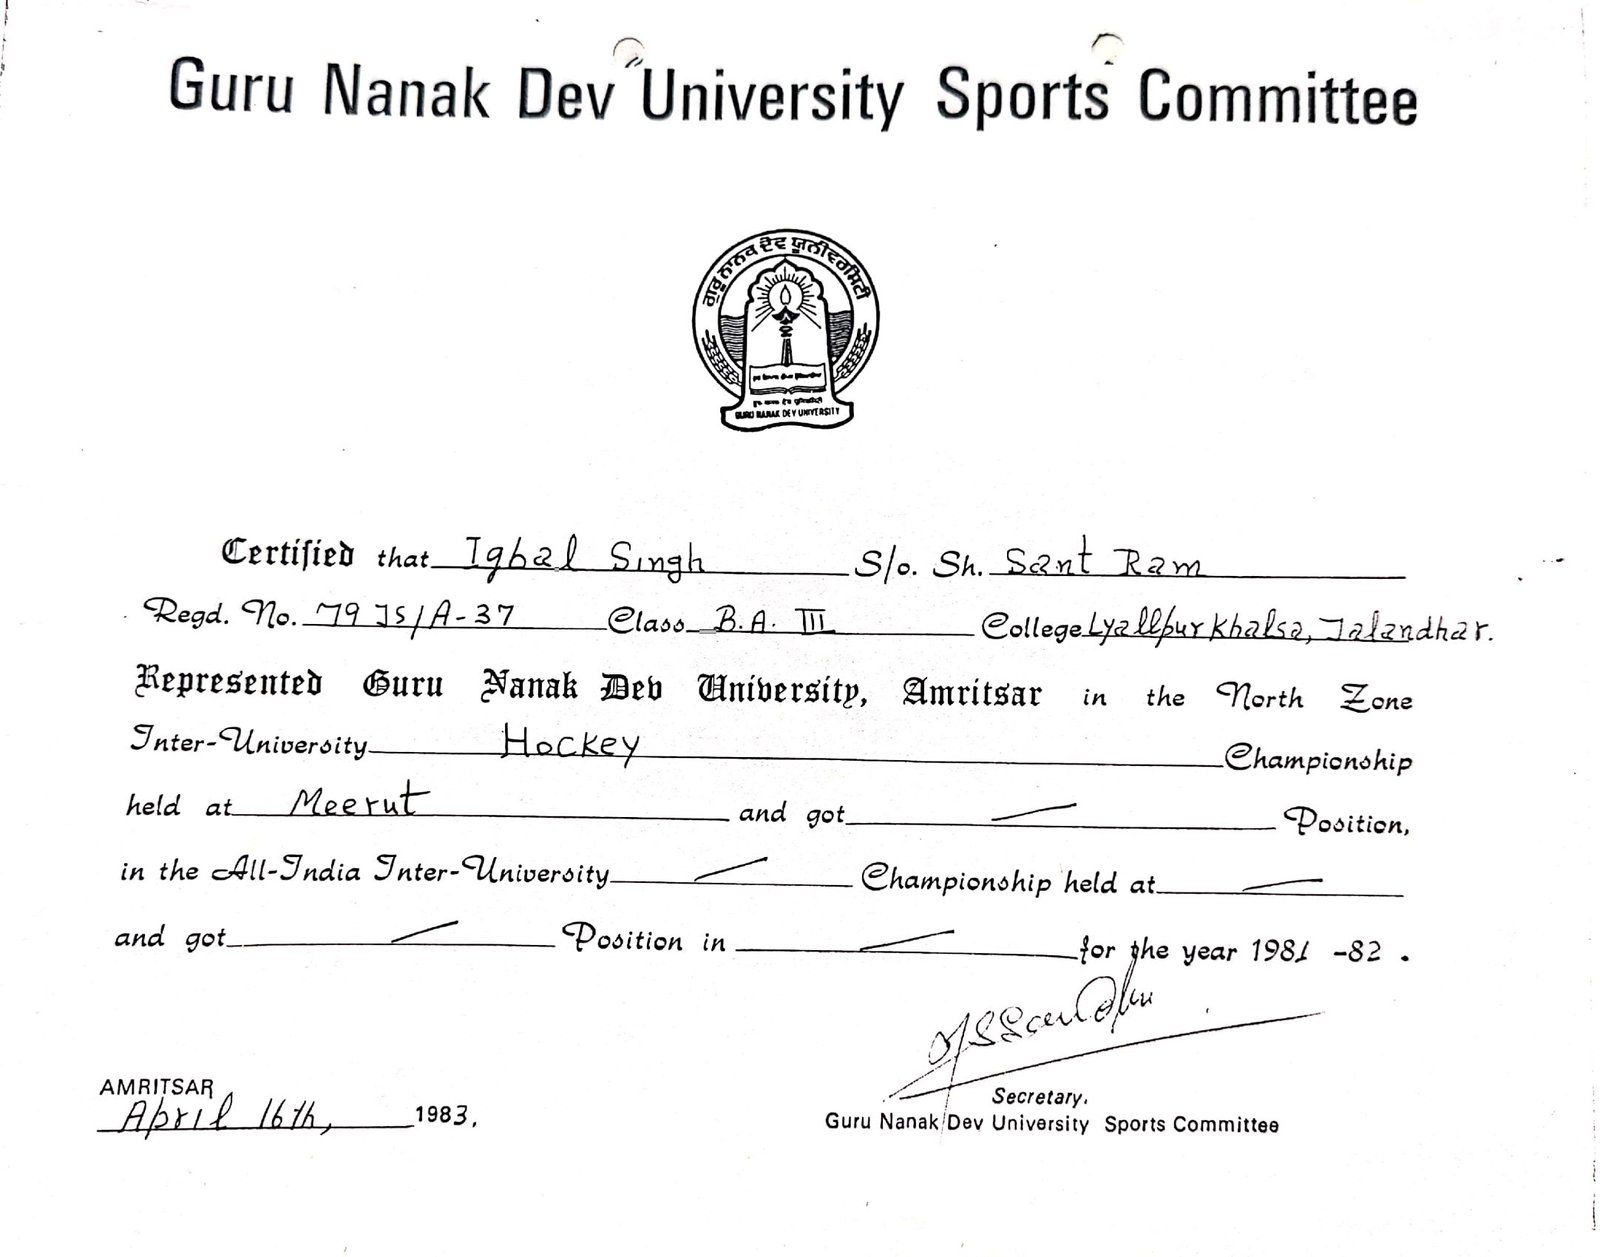 Guru Nanak Dev University Sports Committee
ਗੁਰੂ ਨਾਨਕ ਦੇਵ ਯੂਨੀਵਰਸਿਟੀ
GURU NANAK DEV UNIVERSITY
Certified that Iqbal Singh S/o. Sh. Sant Ram
Regd. No. 79 JS/A-37 Class B.A. III College Lyallpur Khalsa, Jalandhar.
Represented Guru Nanak Dev University, Amritsar in the North Zone
Inter-University Hockey Championship
held at Meerut and got — Position,
in the All-India Inter-University — Championship held at —
and got — Position in — for the year 1981 -82 .
AMRITSAR
April 16th, 1983.
Secretary.
Guru Nanak Dev University Sports Committee